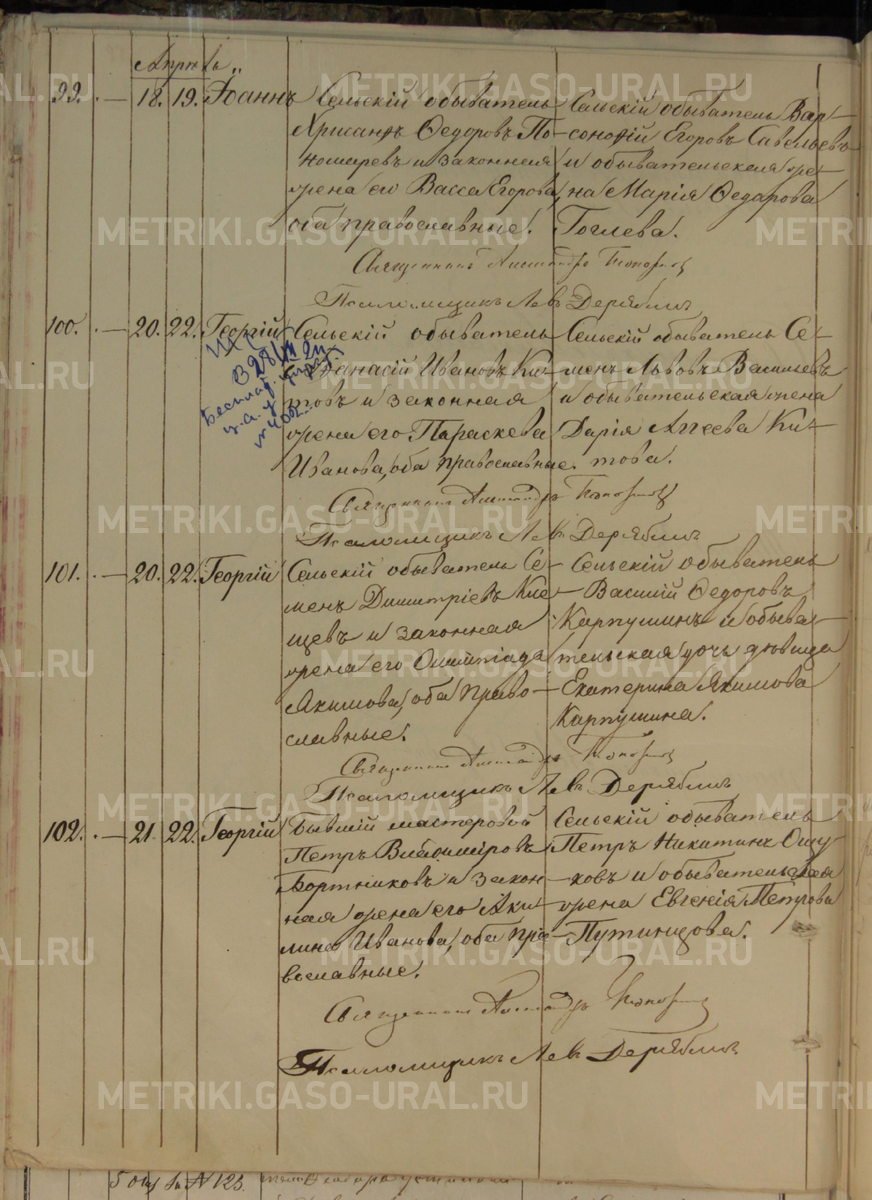 Апрѣль
99. — 18. 19. Іоаннъ Сельскій обыватель
Хрисанѳъ Ѳедоровъ По-
номаревъ и законная
жена его Васса Егорова,
оба православные.
Сельскій обыватель Вар-
сонофій Егоровъ Савельевъ
и обывательская же-
на Марія Ѳедорова
Гоглева.
Священникъ Александръ
Псаломщикъ Левъ Дерябинъ
100. — 20. 22. Георгій Сельскій обыватель
Аѳанасій Ивановъ Ки-
товъ и законная
жена его Параскева
Иванова, оба православные.
Сельскій обыватель Се-
менъ Львовъ Васильевъ
и обывательская жена
Дарія Аггеева Ки-
това.
Священникъ Александръ
Псаломщикъ Левъ Дерябинъ
101. — 20. 22. Георгій Сельскій обыватель Се-
менъ Димитріевъ Кле-
щевъ и законная
жена его Олимпіада
Якимова, оба право-
славные.
Сельскій обыватель
Василій Ѳедоровъ
Карпушинъ и обыва-
тельская дочь дѣвица
Екатерина Якимова
Карпушина.
Священникъ Александръ
Псаломщикъ Левъ Дерябинъ
102. — 21. 22. Георгій Бывшій мастеровой
Петръ Владиміровъ
Бортниковъ и закон-
ная жена его Аку-
лина Иванова, оба пра-
вославные.
Сельскій обыватель
Петръ Никитинъ Ошу-
ковъ и обывательская
жена Евгенія Петрова
Путинцова.
Священникъ Александръ
Псаломщикъ Левъ Дерябинъ
№ 123.
METRIKI.GASO-URAL.RU